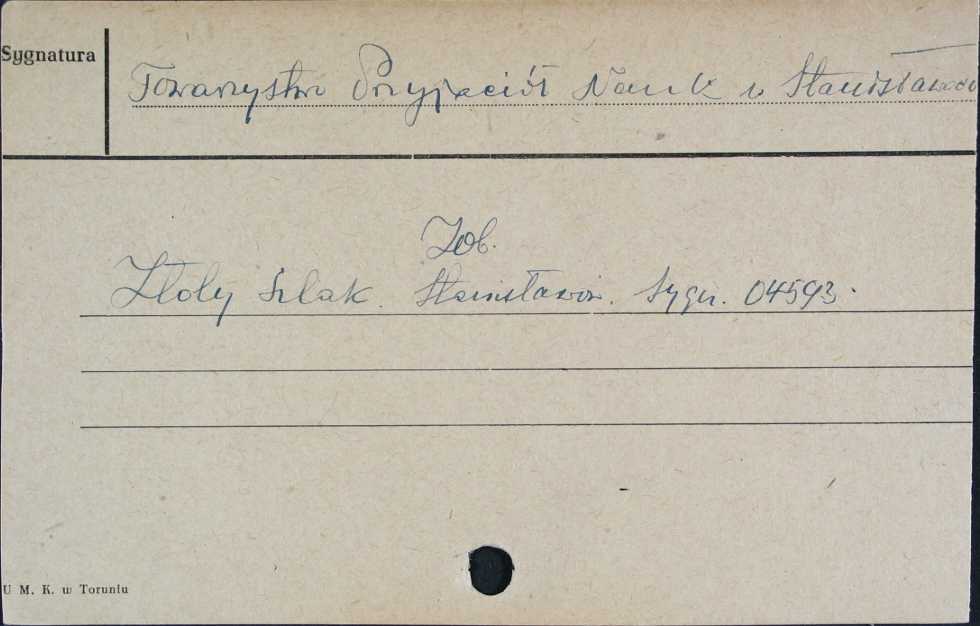 Sygnatura
Towarzystwo Przyjaciół Nauk w Stanisławowie
Zob.
Złoty szlak. Stanisławów. Sygn. 04593.
U M. K. w Toruniu